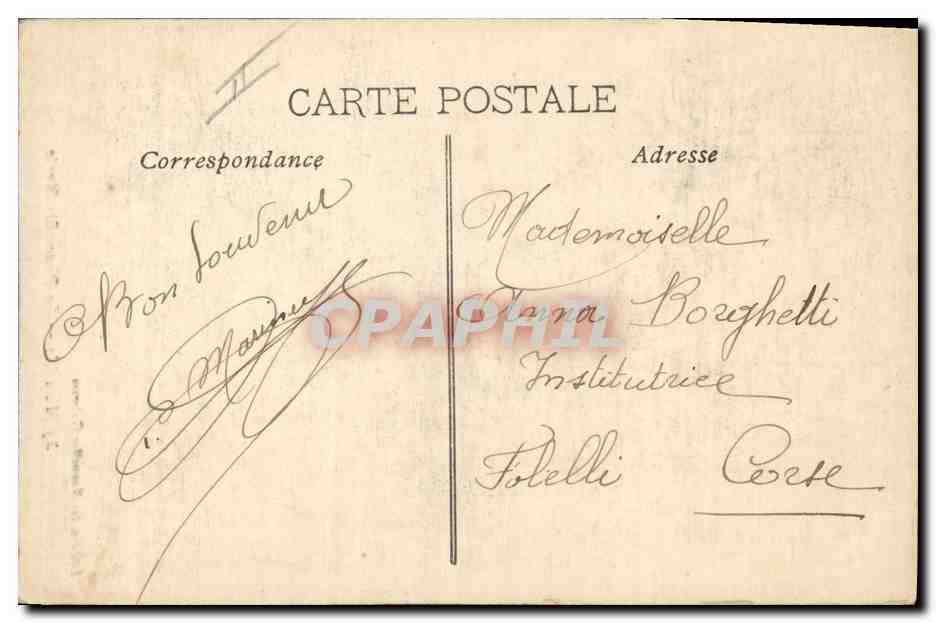 II
CARTE POSTALE
Correspondance
Bon Souvenir
Adresse
Mademoiselle
Anna Borghetti
Institutrice
Folelli Corse
CPAPHIL